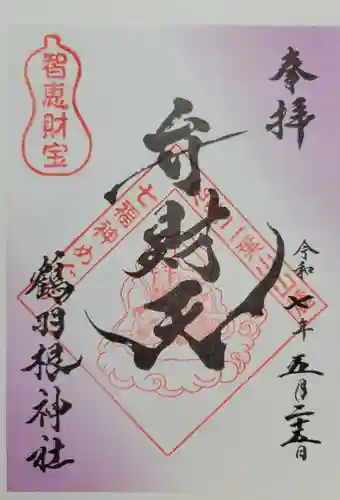 奉拝
令和七年五月二十五日
弁財天
七福神めぐり
智恵財宝
鶴羽根神社